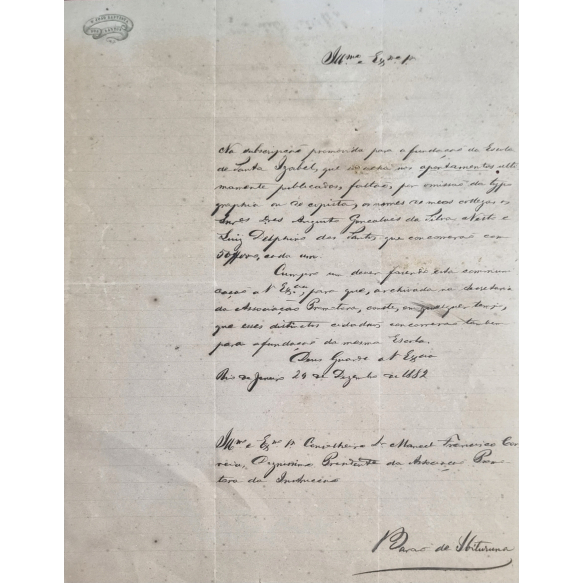 Ill.mo e Ex.mo Sr.
Na subscripção promovida para a fundação da Escola
de Santa Izabel, que se acha nos apontamentos ulti
mamente publicados, faltão, por omissão da typo
graphia ou do copista, os nomes de meus collegas os
Snres Drs Augusto Gonsalves da Silva Netto e
Luiz Delphino dos Santos, que concorrerão com
50$000, cada um.
Cumpro um dever fazendo esta communi
cação a V. Excia, para que, archivada na Secretaria
da Associação Protectora, conste, em qualquer tempo,
que esses distinctos cidadãos concorrerão tambem
para a fundação da mesma Escola.
Deus Guarde a V. Excia
Rio de Janeiro 24 de Dezembro de 1882
Ill.mo e Ex.mo Sr. Conselheiro Dr. Manoel Francisco Cor
reia, Dignissimo Presidente da Associação Prote
tora da Instrucção
Barão de Ibituruna